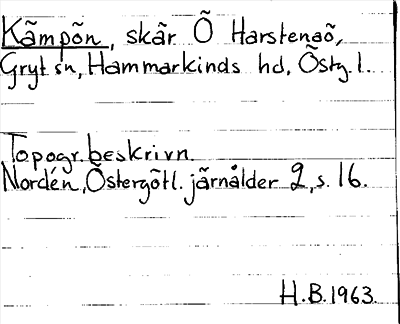 Kãmpõn, skãr Õ Harstenaõ,
Gryt sn, Hammarkinds hd, Õstg.l.
Topogr.beskrivn.
Nordén, Õstergõtl. jãrnålder 2, s. 16.
H.B.1963.